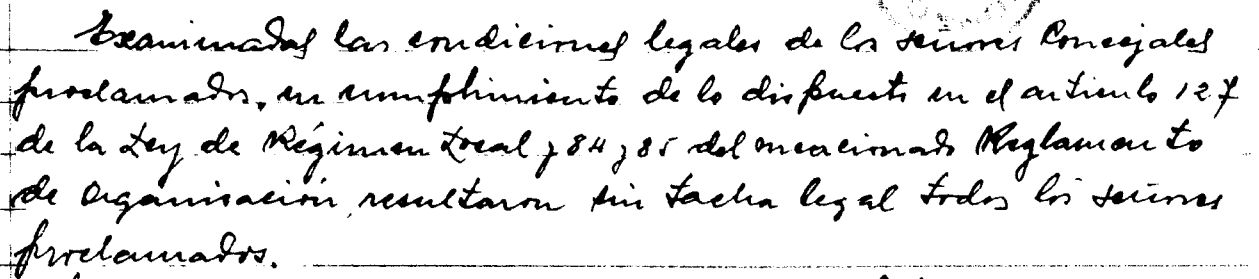 Examinadas las condiciones legales de los señores Concejales
proclamados, en cumplimiento de lo dispuesto en el artículo 127
de la Ley de Régimen Local y 84 y 85 del mencionado Reglamento
de Organización, resultaron sin tacha legal todos los señores
proclamados.